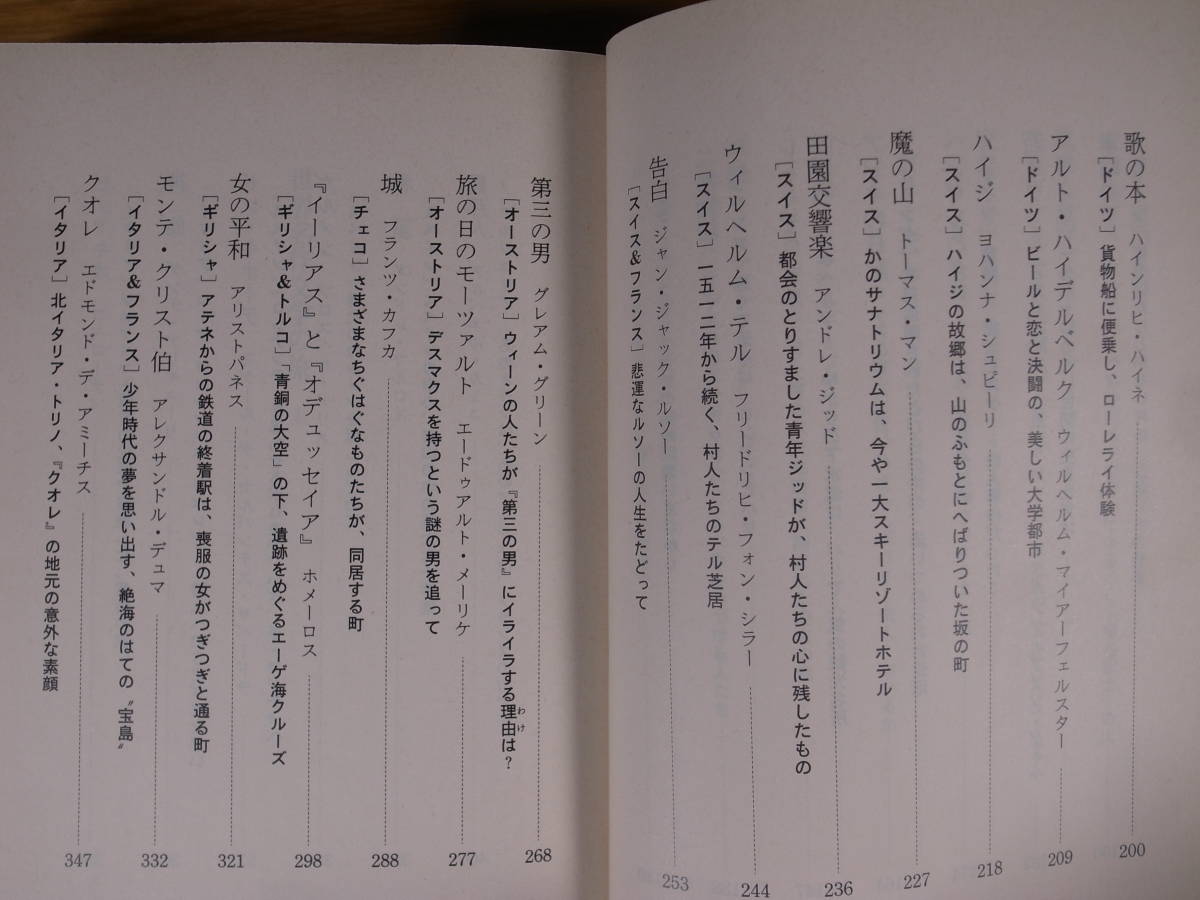 歌の本 ハインリヒ・ハイネ 200
［ドイツ］貨物船に便乗し、ローレライ体験
アルト・ハイデルベルク ウィルヘルム・マイアーフェルスター 209
［ドイツ］ビールと恋と決闘の、美しい大学都市
ハイジ ヨハンナ・シュピーリ 218
［スイス］ハイジの故郷は、山のふもとにへばりついた坂の町
魔の山 トーマス・マン 227
［スイス］かのサナトリウムは、今や一大スキーリゾートホテル
田園交響楽 アンドレ・ジッド 236
［スイス］都会のとりすました青年ジッドが、村人たちの心に残したもの
ウィルヘルム・テル フリードリヒ・フォン・シラー 244
［スイス］一五一二年から続く、村人たちのテル芝居
告白 ジャン・ジャック・ルソー 253
［スイス&フランス］悲運なルソーの人生をたどって
第三の男 グレアム・グリーン 268
［オーストリア］ウィーンの人たちが『第三の男』にイライラする理由は？
わけ
旅の日のモーツァルト エードゥアルト・メーリケ 277
［オーストリア］デスマクスを持つという謎の男を追って
城 フランツ・カフカ 288
［チェコ］さまざまなちぐはぐなものたちが、同居する町
『イーリアス』と『オデュッセイア』 ホメーロス 298
［ギリシャ&トルコ］「青銅の大空」の下、遺跡をめぐるエーゲ海クルーズ
女の平和 アリストパネス 321
［ギリシャ］アテネからの鉄道の終着駅は、喪服の女がつぎつぎと通る町
モンテ・クリスト伯 アレクサンドル・デュマ 332
［イタリア&フランス］少年時代の夢を思い出す、絶海のはての〝宝島〟
クオレ エドモンド・デ・アミーチス 347
［イタリア］北イタリア・トリノ、『クオレ』の地元の意外な素顔